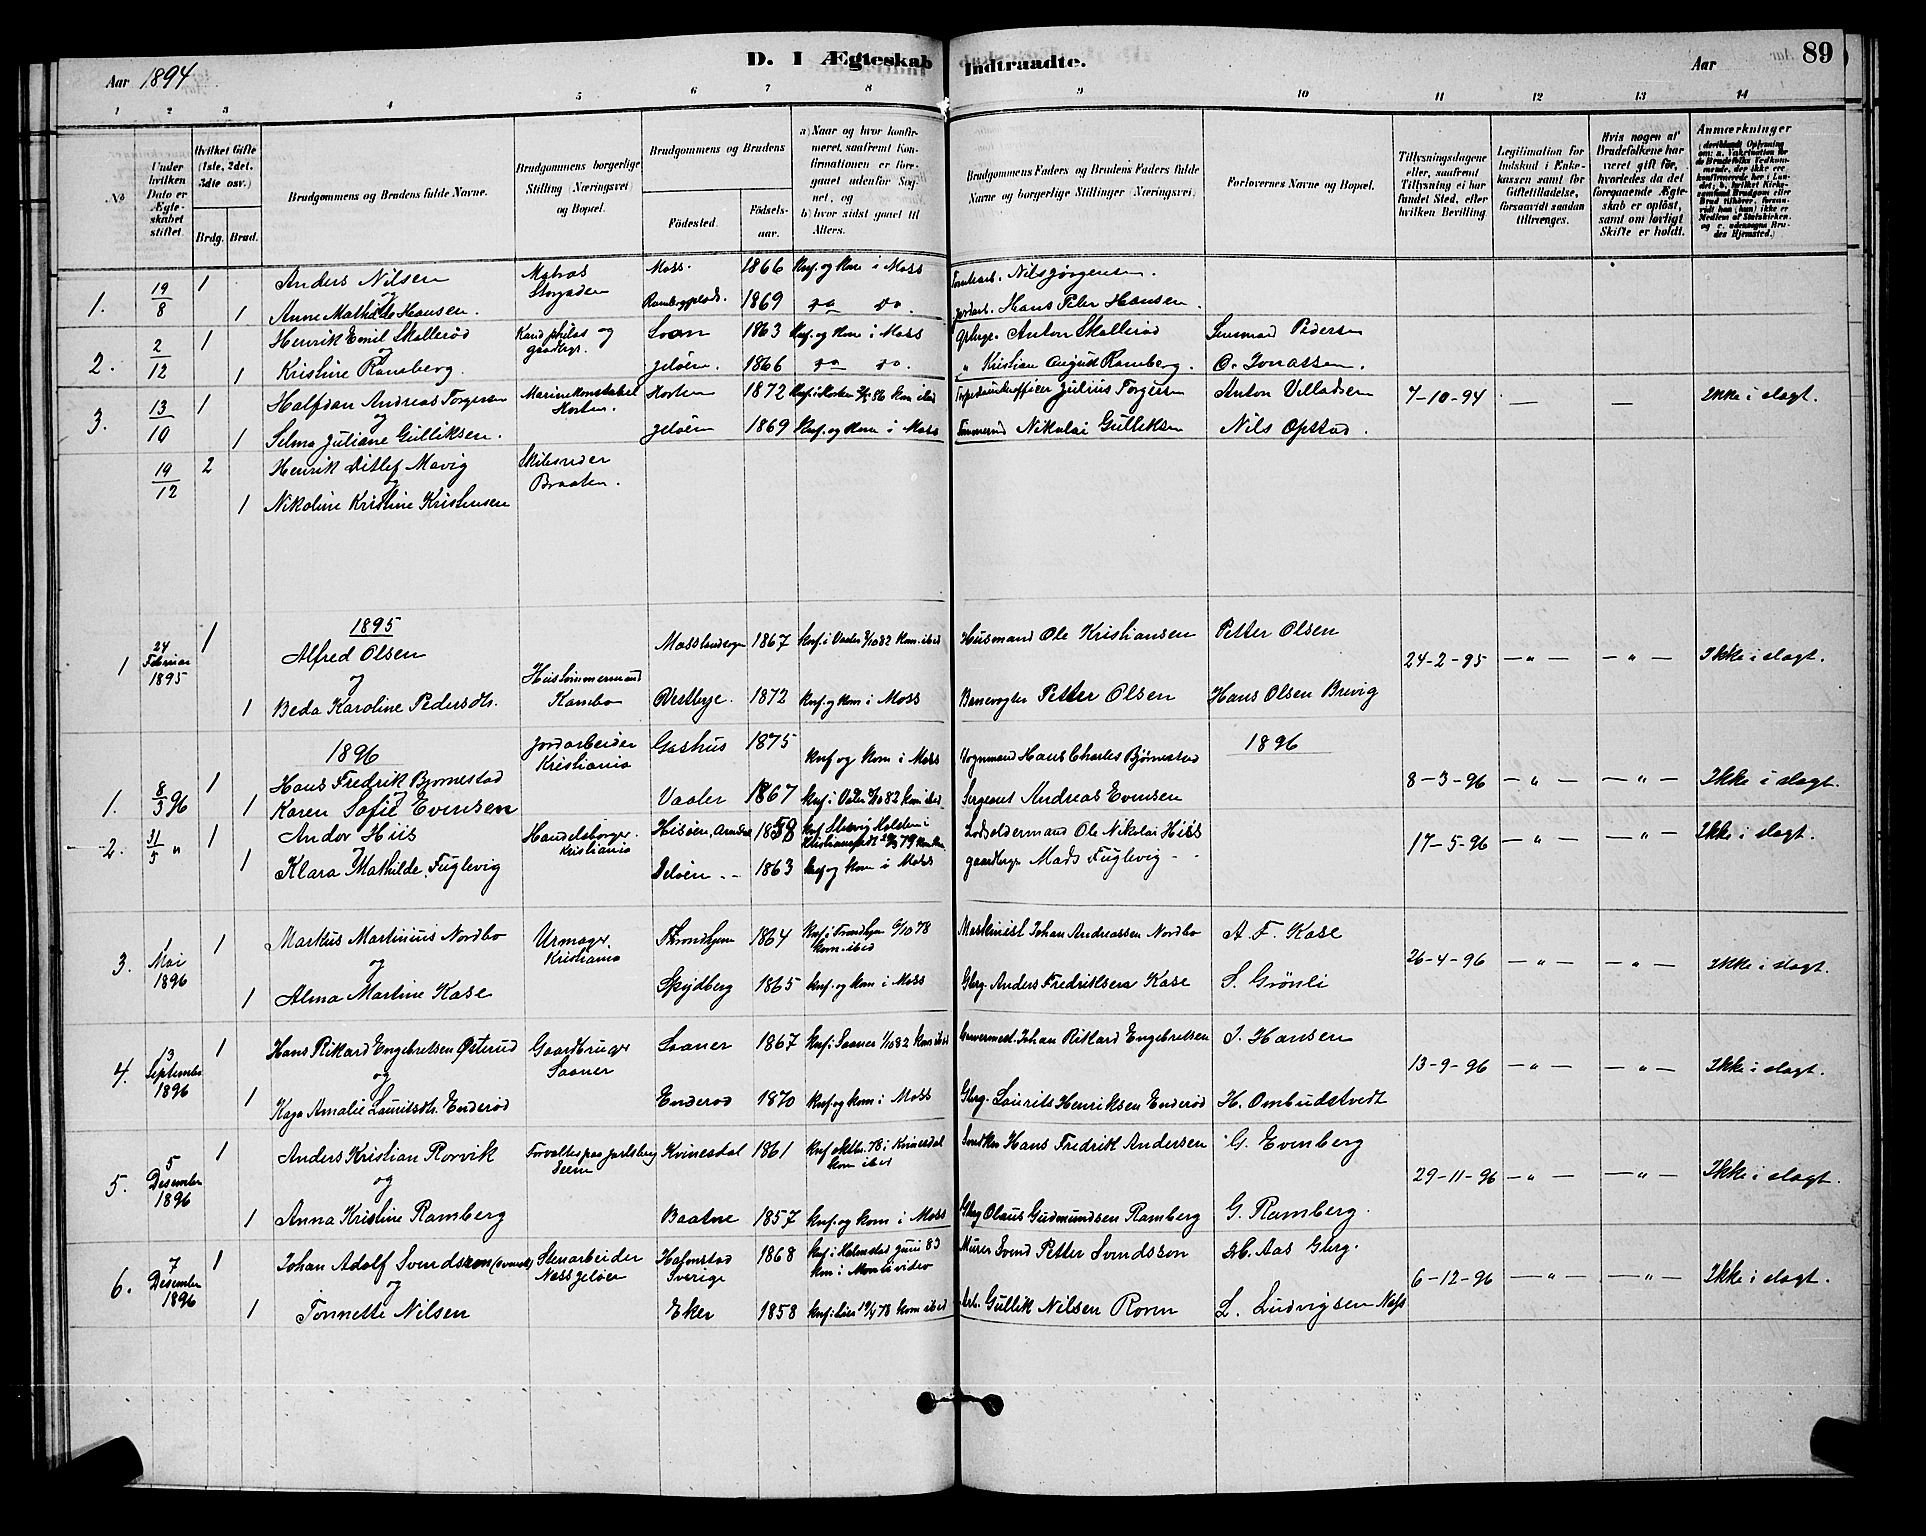 D. I Ægteskab Indtraadte.
Aar 1894
Aar
89
1 2 3 4 5 6 7 8 9 10 11 12 13 14
No
Under hvilken Dato er Ægteskabet stiftet.
Hvilket Gifte (1ste, 2det, 3dte osv.)
Brdg. Brud.
Brudgommens og Brudens fulde Navne.
Brudgommens borgerlige Stilling (Næringsvei) og Bopæl.
Brudgommens og Brudens
Födested.
Födselsaar.
a) Naar og hvor konfirmeret, saafremt Konfirmationen er foregaaet udenfor Sognet, og
b) hvor sidst gaaet til Alters.
Brudgommens Faders og Brudens Faders fulde Navne og borgerlige Stillinger (Næringsvei).
Forlovernes Navne og Bopæl.
Tillysningsdagene eller, saafremt Tillysning ei har fundet Sted, efter hvilken Bevilling.
Legitimation for Indskud i Enkekassen samt for Giftetilladelse, forsaavidt saadan tiltrænges.
Hvis nogen af Brudefolkene har været gift før, hvorledes da det foregaaende Ægteskab er oplöst, samt om lovligt Skifte er holdt.
Anmærkninger
1. 19/8 1 Anders Nilsen Matros Moss. 1866 Knf. og Kom i Moss Nils Jörgensen.
og Storgaden
1 Anne Mathilde Hansen. 1869 do do. Hans Peter Hansen.
2. 2/12 1 Henrik Emil Skallerød Kand. philos og Soon 1863 Knf. og Kom i Moss Gbrugr. Anton Skallerød Pedersen
og gaardbgr.
1 Kristine Ramberg. Jeløen. 1866 do do. " Kristian August Ramberg. O. Jonassen.
3. 13/10 1 Halfdan Andreas Torgersen Marinekonstabel Horten 1872 Knf. i Horten 86 Kom ibid Julius Torgersen Anton Villadsen 7-10-94 — — Ikke i slægt.
og Horten
1 Selma Juliane Gulliksen. Jeløen 1869 Knf. og Kom i Moss Nikolai Gulliksen Nils Opstad.
19/12 2 Henrik Ditlef Mavig
og Braaten.
1 Nikoline Kristine Kristensen
1895
1 24 Februar 1895 1 Alfred Olsen Mosslandsogn 1867 Knf. i Vaaler 10 82 Kom. ibid Husmand Ole Kristiansen Petter Olsen 24-2-95 — " — — " — Ikke i slægt.
og Hustömmermand
1 Beda Karoline Pedersdtr. Kambo Vestbye. 1872 knf. og kom i Moss Banevogter Petter Olsen Hans Olsen Brevig
1896 1896
1. 8/3 96 1 Hans Fredrik Bjørnestad Jordarbeider Kristiania 1875 knf og kom i Moss Vognmand Hans Charles Bjørnestad 8-3-96 — " — — " — Ikke i slægt.
og
1 Karen Sofie Evensen Vaaler 1867 knf. i Vaaler 10 82 kom ibid. Sergeant Andreas Evensen
2. 31/5 " 1 Andor Hiis Handelsborger. Kristiania Hisöen, Arendal 1858 Ole Nikolai Hiis 17-5-96 — " — — " — Ikke i slægt.
og
1 Klara Mathilde Fuglevig 1863 knf og kom i Moss gaardbgr Mads Fuglevig - -
3. 1 Mai 1896 1 Markus Martinius Nordbo Urmager. Kristiania Throndhjem 1864 knf. i Trondhjem 10 78 kom. ibid Maskinist Johan Andreassen Nordbo A. F. Kase 26-4-96 — " — — " — Ikke i slægt.
og
1 Alma Martine Kase Spydberg 1865 knf. og kom i Moss Gbrg. Anders Fredriksen Kase S. Grönli
4. 13 September 1896 1 Hans Rikard Engebretsen Østerud Gaardbruger Saaner Saaner 1867 knf. i Saaner 1/10 82 kom ibid Johan Rikard Engebretsen J. Hansen 13-9-96 — " — — " — Ikke i slægt.
og
1 Kaja Amalie Lauritsdtr. Enderød Enderød 1870 knf. og kom i Moss Gbrg. Laurits Henriksen Enderød H. Ombudstvedt
5. 5 Desember 1896 1 Anders Kristian Rörvik Forvalter paa Jarlsberg Kvinesdal 1861 knf. oktbr. 78 i Kvinesdal kom ibid Hans Fredrik Andersen G. Evenberg 29-11-96 — " — — " — Ikke i slægt.
og
1 Anna Kristine Ramberg 1857 knf. og kom i Moss Gbrg Olaus Gudmundsen Ramberg G. Ramberg.
6. 7 Desember 1896 1 Johan Adolf Svendsson (svensk) Stenarbeider Næss Jeløen Halmstad Sverige 1868 knf. i Halmstad Juni 83 kom i Montevideo Murer Svend Petter Svendsson M. Aas Gbrg. 6-12-96 — " — — " — Ikke i slægt.
og
1 Tonnette Nilsen Eker 1858 knf. i Lier 78 kom ibid Arb. Gullik Nilsen Roren L. Ludvigsen Næss